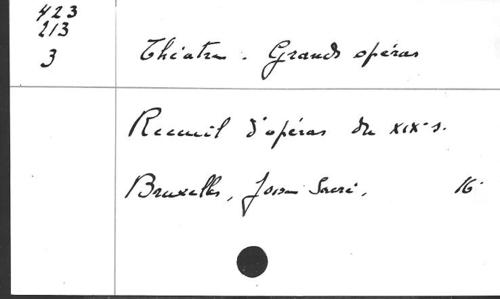 423
213
3
Théâtre. Grands opéras
Recueil d'opéras du XIXe s.
Bruxelles, Sacré, 16°